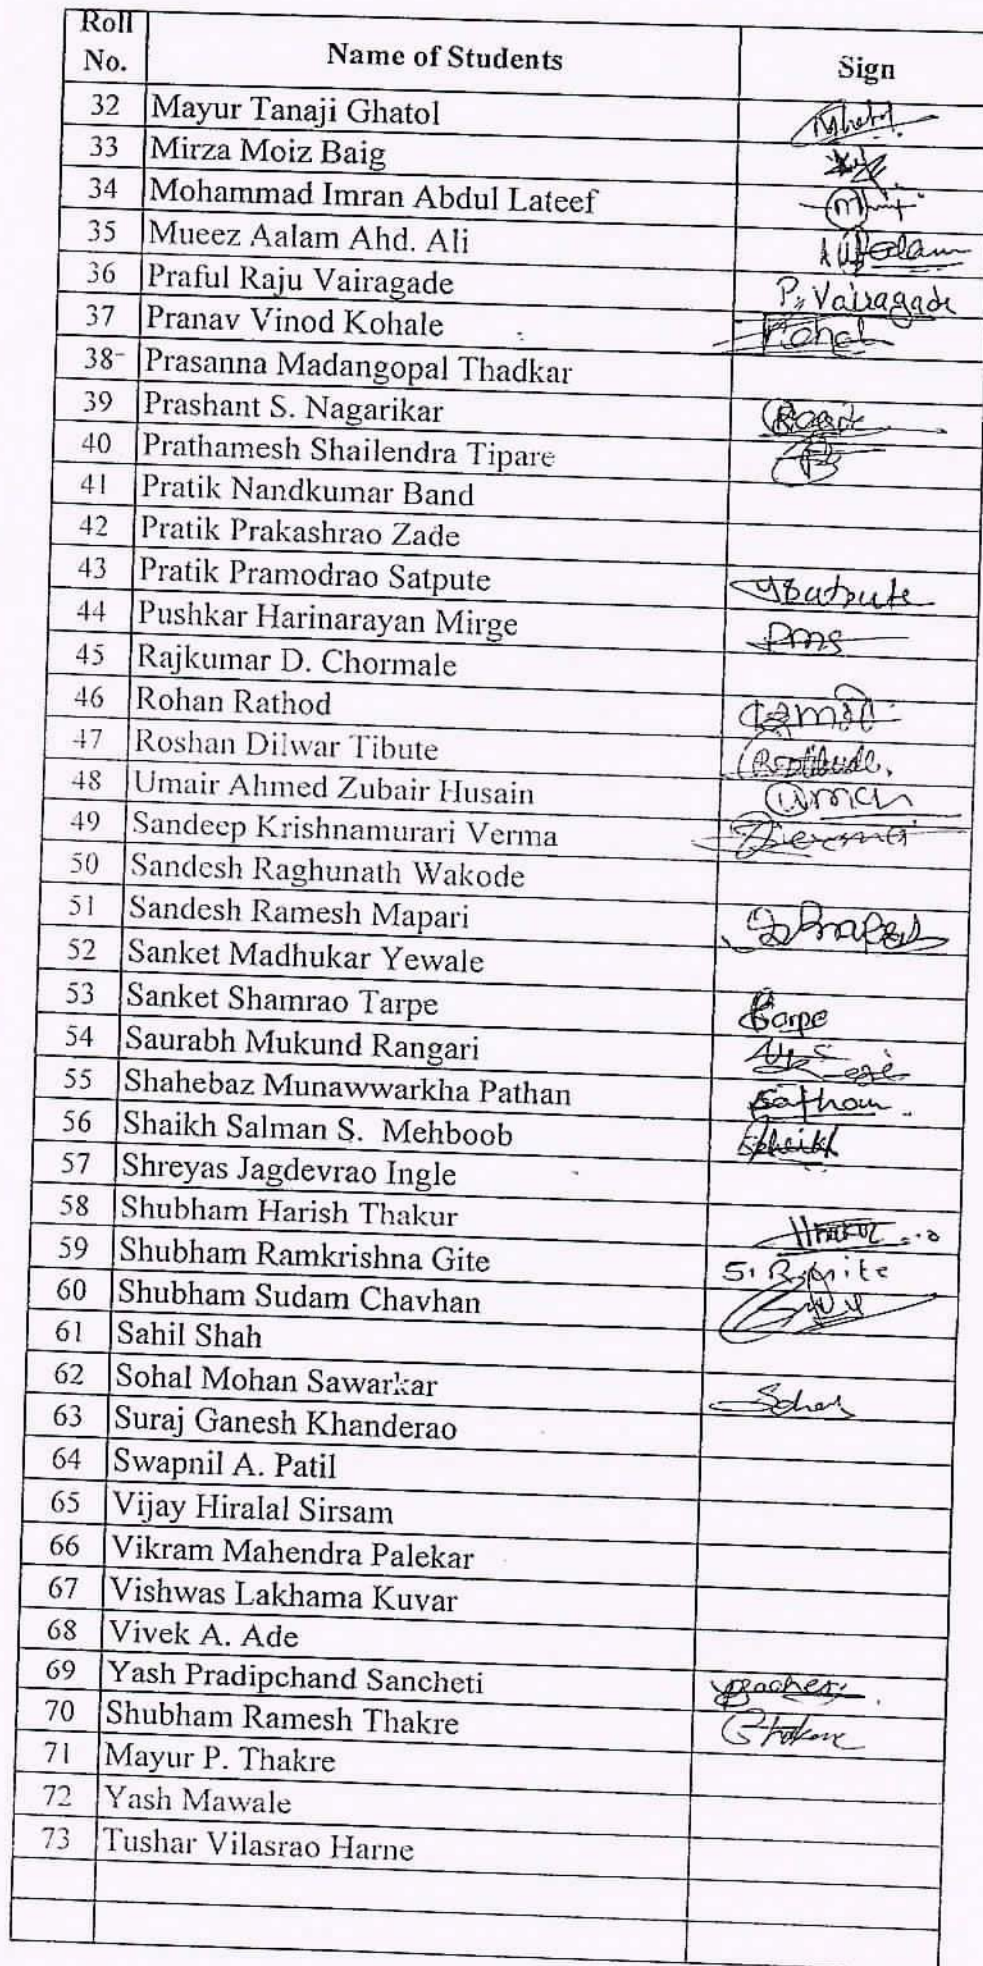 Roll No. Name of Students Sign
32 Mayur Tanaji Ghatol
33 Mirza Moiz Baig
34 Mohammad Imran Abdul Lateef
35 Mueez Aalam Ahd. Ali
36 Praful Raju Vairagade P. Vairagade
37 Pranav Vinod Kohale
38 Prasanna Madangopal Thadkar
39 Prashant S. Nagarikar
40 Prathamesh Shailendra Tipare
41 Pratik Nandkumar Band
42 Pratik Prakashrao Zade
43 Pratik Pramodrao Satpute
44 Pushkar Harinarayan Mirge
45 Rajkumar D. Chormale
46 Rohan Rathod
47 Roshan Dilwar Tibute
48 Umair Ahmed Zubair Husain
49 Sandeep Krishnamurari Verma
50 Sandesh Raghunath Wakode
51 Sandesh Ramesh Mapari
52 Sanket Madhukar Yewale
53 Sanket Shamrao Tarpe
54 Saurabh Mukund Rangari
55 Shahebaz Munawwarkha Pathan
56 Shaikh Salman S. Mehboob
57 Shreyas Jagdevrao Ingle
58 Shubham Harish Thakur
59 Shubham Ramkrishna Gite
60 Shubham Sudam Chavhan
61 Sahil Shah
62 Sohal Mohan Sawarkar
63 Suraj Ganesh Khanderao
64 Swapnil A. Patil
65 Vijay Hiralal Sirsam
66 Vikram Mahendra Palekar
67 Vishwas Lakhama Kuvar
68 Vivek A. Ade
69 Yash Pradipchand Sancheti
70 Shubham Ramesh Thakre
71 Mayur P. Thakre
72 Yash Mawale
73 Tushar Vilasrao Harne